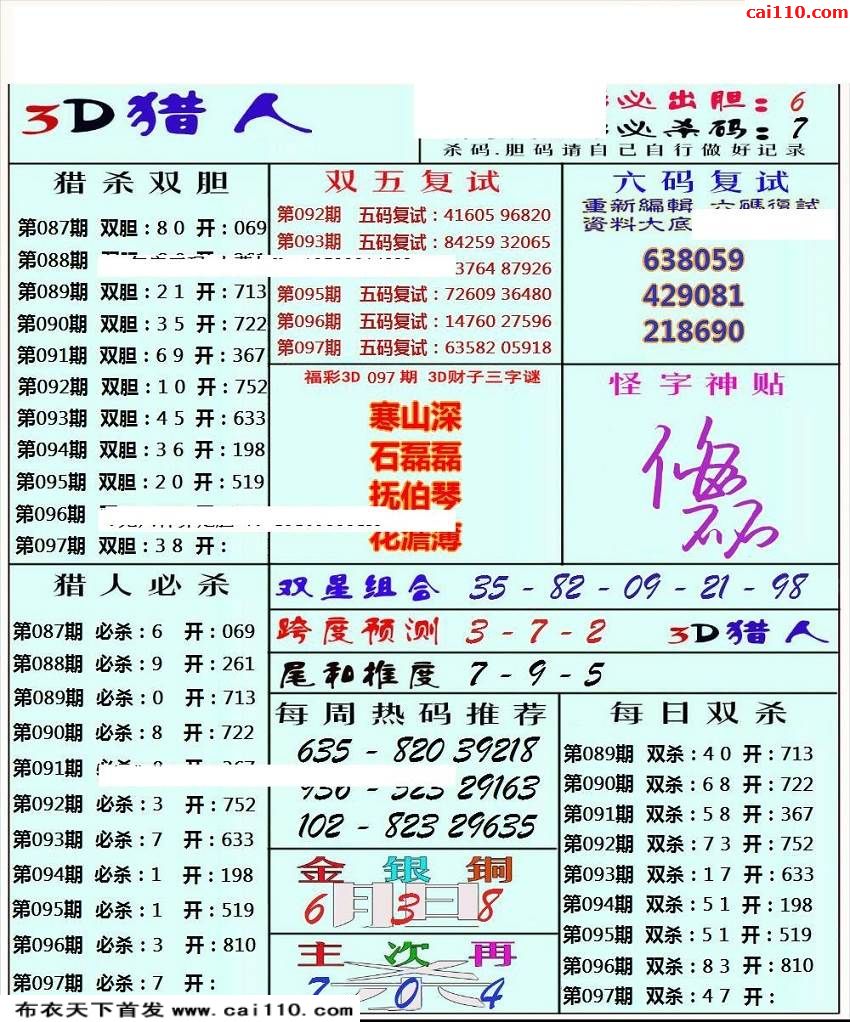 cai110.com
3D猎人
必出胆：6
必杀码：7
杀码.胆码请自己自行做好记录
猎杀双胆
第087期 双胆：80 开：069
第088期
第089期 双胆：21 开：713
第090期 双胆：35 开：722
第091期 双胆：69 开：367
第092期 双胆：10 开：752
第093期 双胆：45 开：633
第094期 双胆：36 开：198
第095期 双胆：20 开：519
第096期
第097期 双胆：38 开：
双五复试
第092期 五码复试：41605 96820
第093期 五码复试：84259 32065
3764 87926
第095期 五码复试：72609 36480
第096期 五码复试：14760 27596
第097期 五码复试：63582 05918
六码复试
重新編輯 六碼復試
資料大底
638059
429081
218690
福彩3D 097期 3D财子三字谜
寒山深
石磊磊
抚伯琴
花澹薄
怪字神贴
猎人必杀
第087期 必杀：6 开：069
第088期 必杀：9 开：261
第089期 必杀：0 开：713
第090期 必杀：8 开：722
第091期
第092期 必杀：3 开：752
第093期 必杀：7 开：633
第094期 必杀：1 开：198
第095期 必杀：1 开：519
第096期 必杀：3 开：810
第097期 必杀：7 开：
双星组合 35-82-09-21-98
跨度预测 3-7-2 3D猎人
尾和推度 7-9-5
每周热码推荐
635-820 39218
936-523 29163
102-823 29635
金银铜
6 3 8
主次再
7 0 4
每日双杀
第089期 双杀：40 开：713
第090期 双杀：68 开：722
第091期 双杀：58 开：367
第092期 双杀：73 开：752
第093期 双杀：17 开：633
第094期 双杀：51 开：198
第095期 双杀：51 开：519
第096期 双杀：83 开：810
第097期 双杀：47 开：
布衣天下首发 www.cai110.com